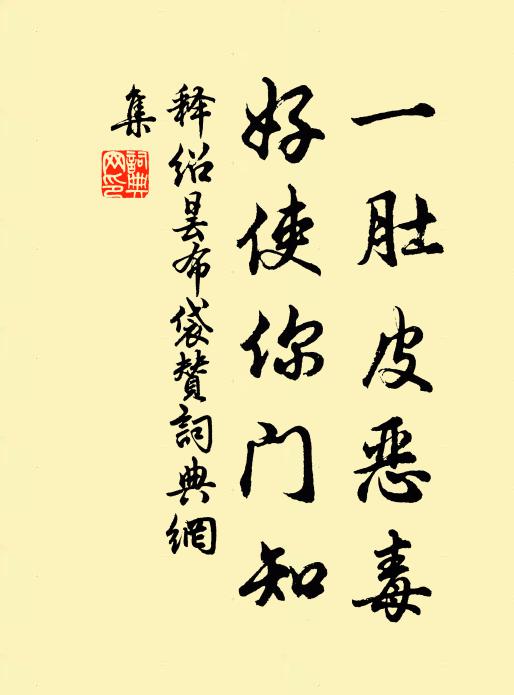 一肚皮恶毒
好使你门知
释绍昙布袋赞词典網
集
詞典網印